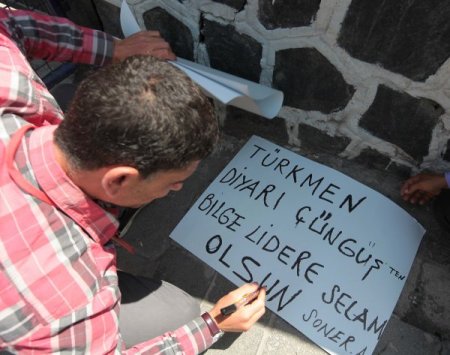 TÜRKMEN
DİYARI ÇÜNGÜŞ TEN
BİLGE LİDERE SELAM
OLSUN SONER